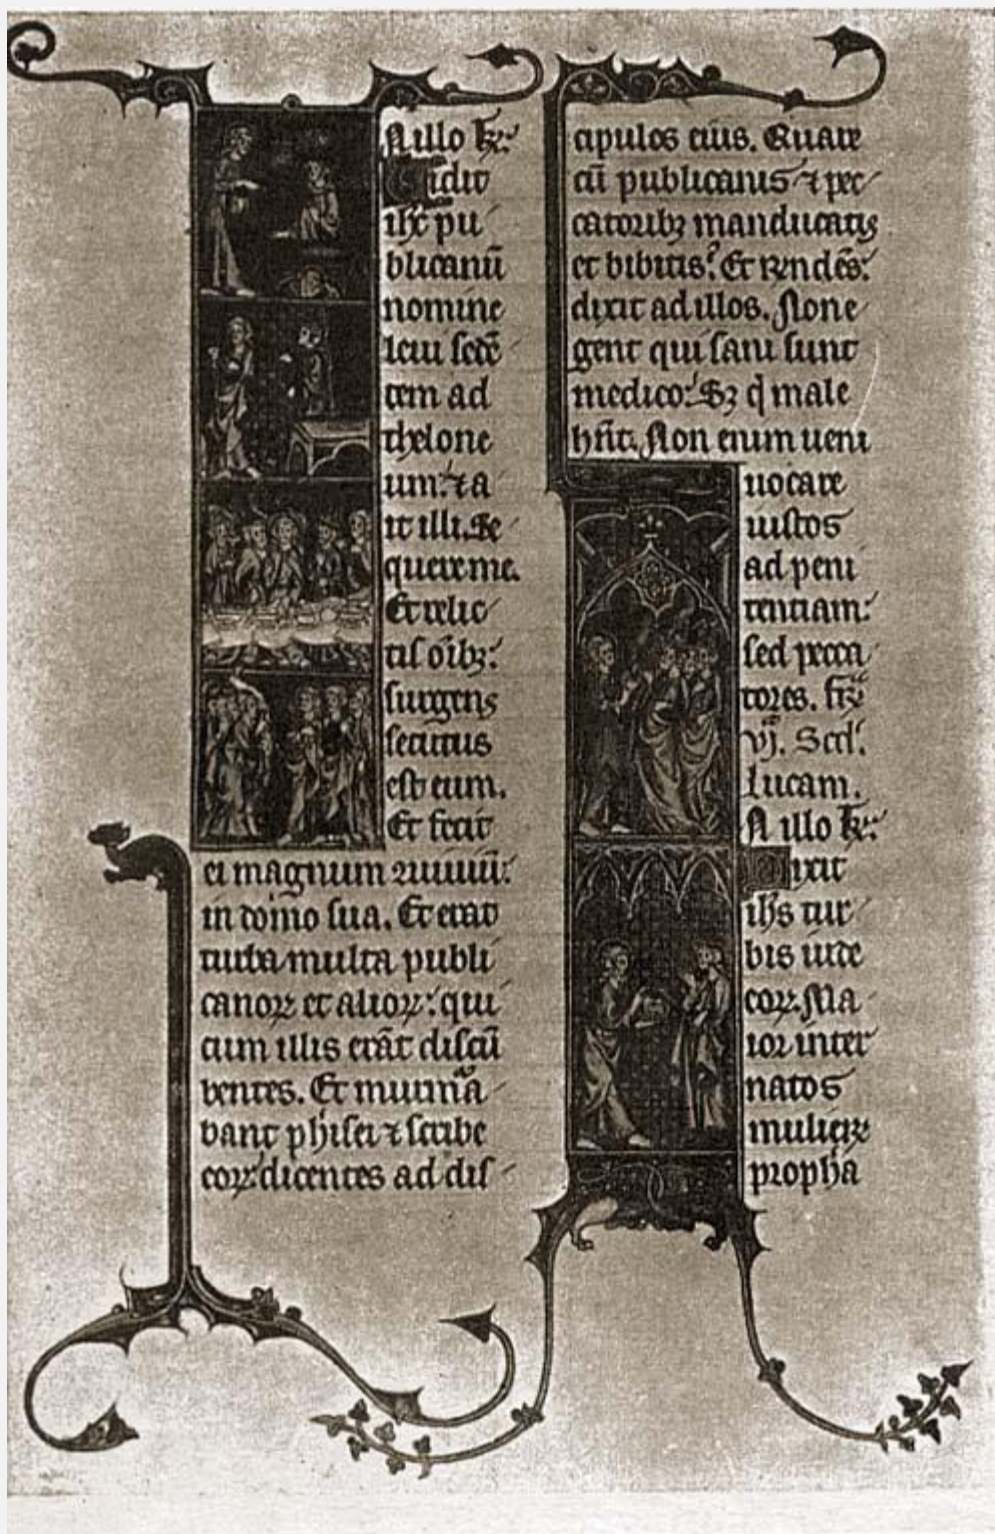 N illo tꝑ:
Vidit
ihc pu
blicanū
nomine
leui sedē
tem ad
thelone
um: ⁊ a
it illi. Se
quere me.
Et relic
tis oīb;:
surgens
secutus
est eum.
Et fecit
ei magnum ɔuiuiū:
in domo sua. Et erat
turba multa publi
canoꝝ et alioꝝ: qui
cum illis erāt discū
bentes. Et murmͣa
bant phisei ⁊ scribe
eoꝝ dicentes ad dis
cipulos eius. Quare
cū publicanis ⁊ pec
catorib; manducatis
et bibitis? Et rn̄dēs:
dixit ad illos. Non e
gent qui sani sunt
medico: S; q̇ male
hn̄t. Non enim ueni
uocare
iustos
ad peni
tentiam:
sed pecca
tores. fr̄
vj. Scd'.
Lucam.
N illo tꝑ:
Dixit
ihs tur
bis iude
oꝝ. Ma
ior inter
natos
mulieꝝ
propha